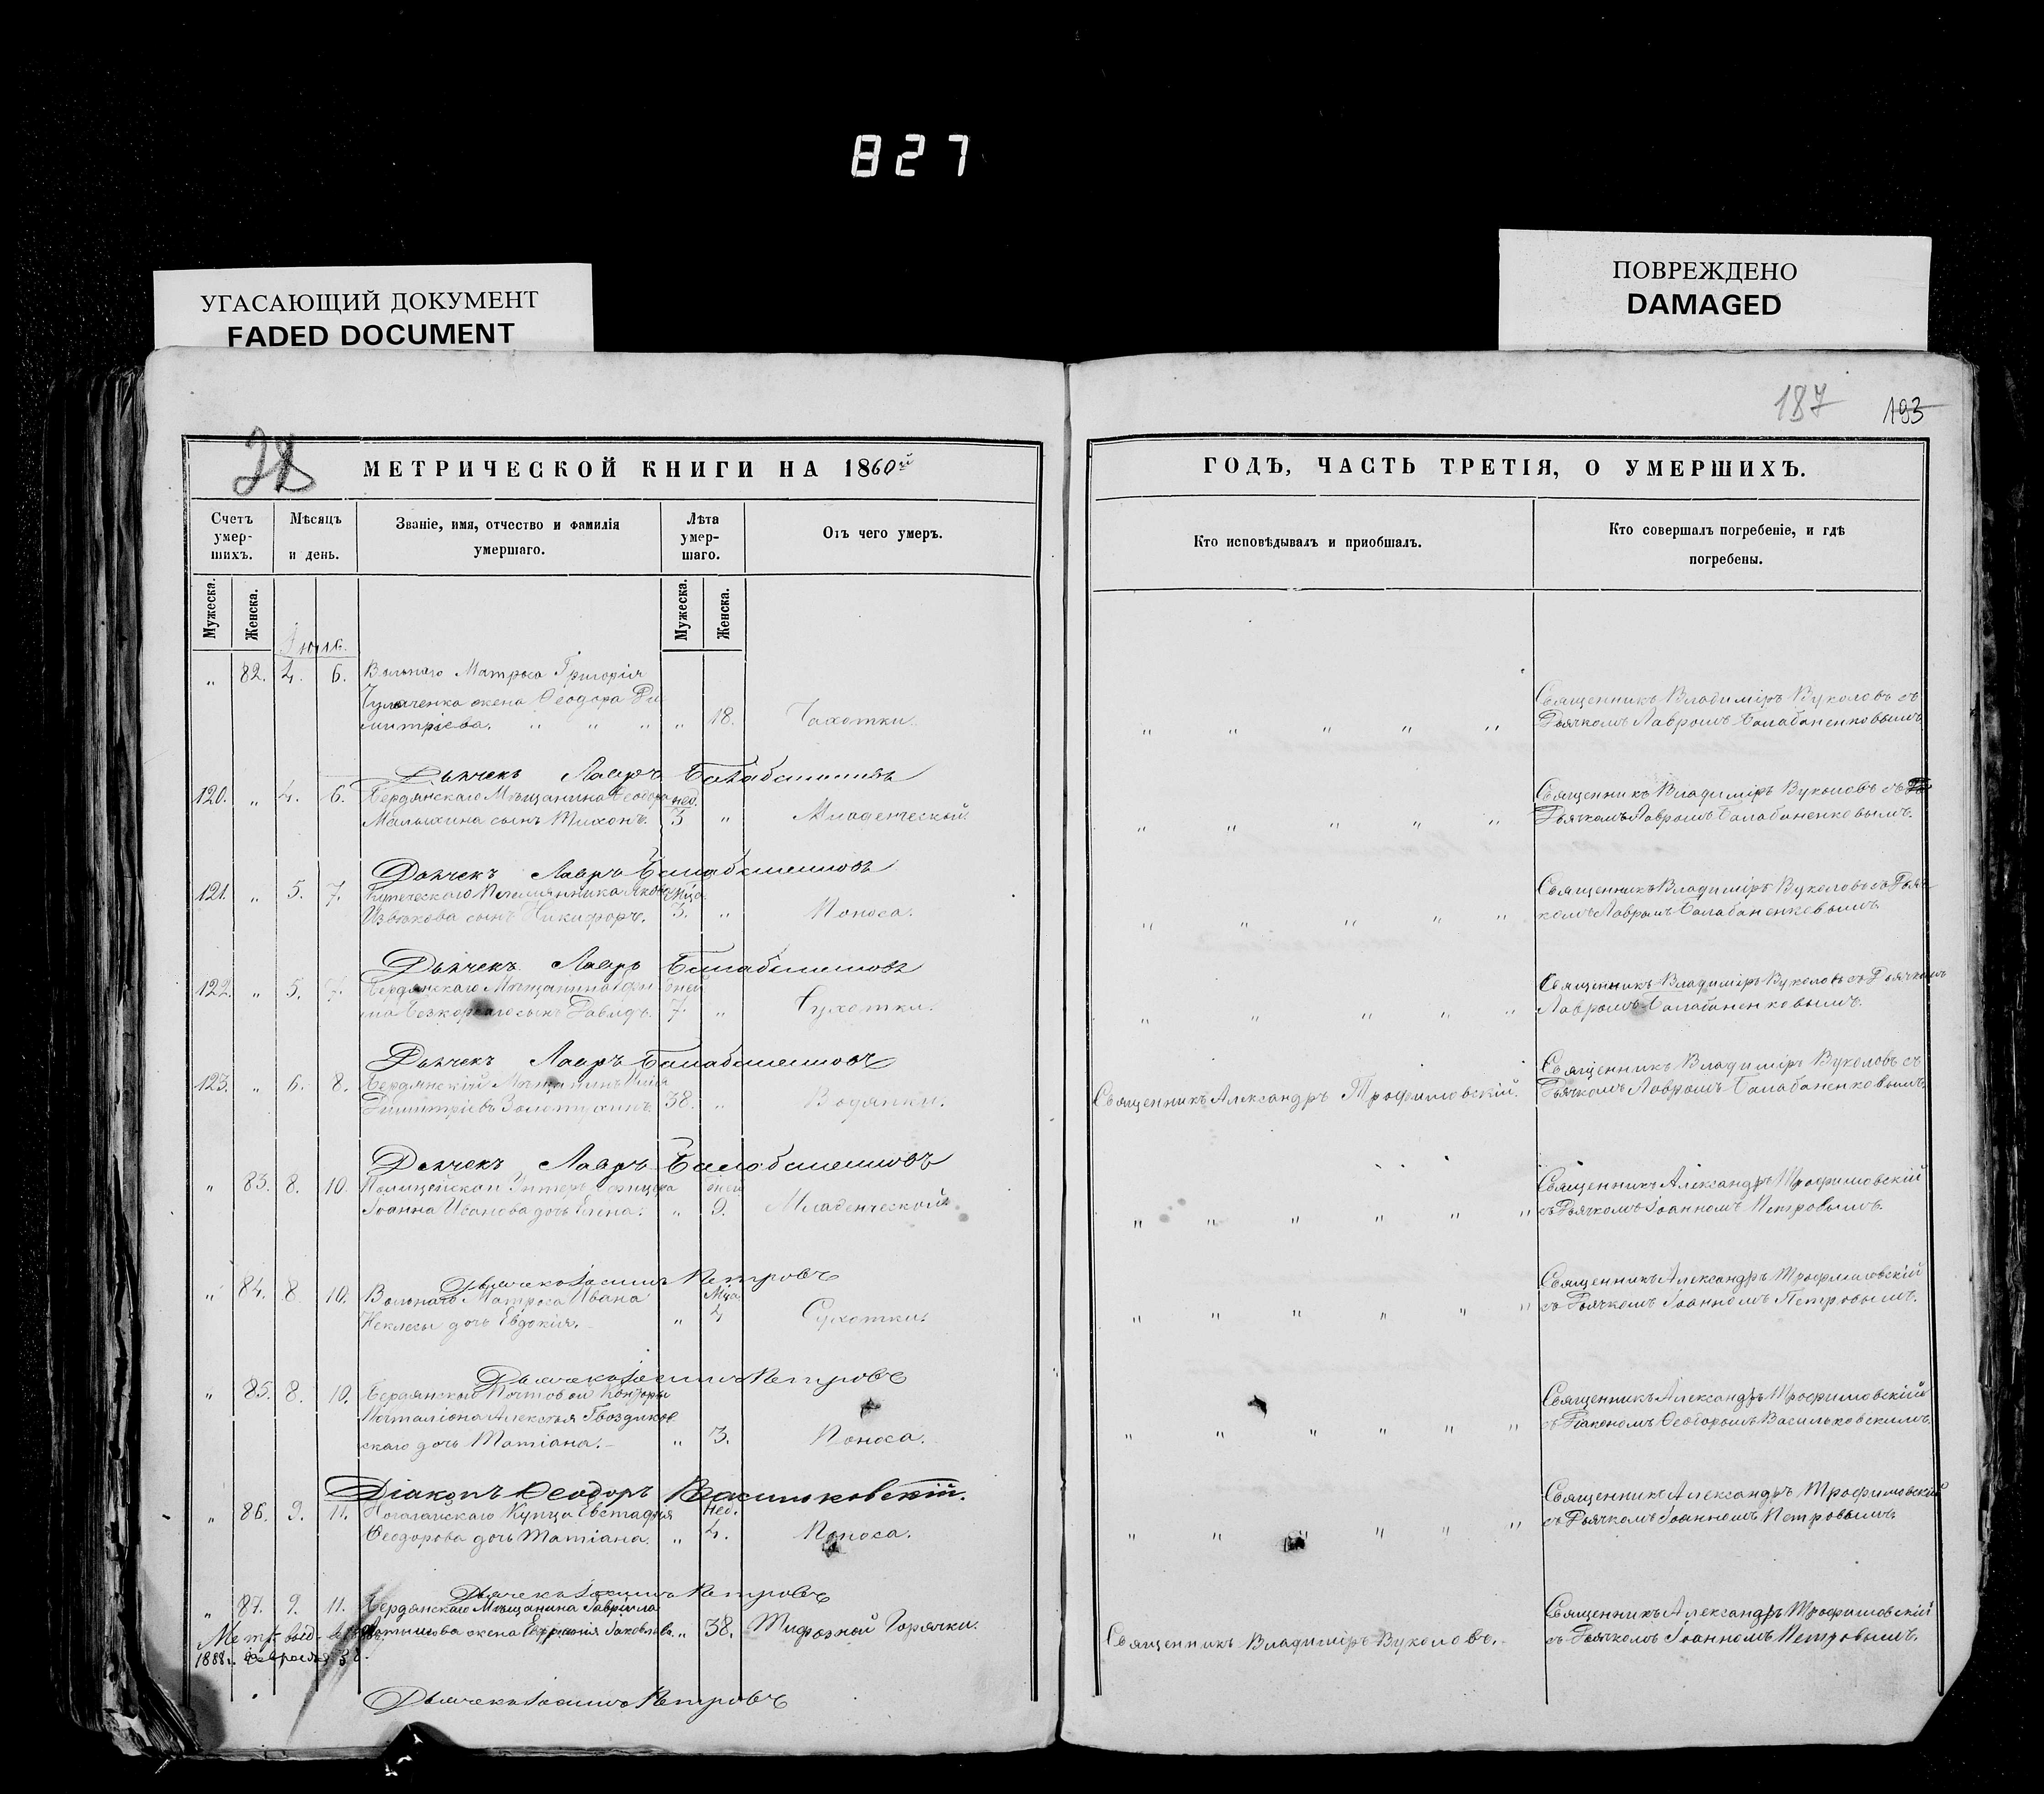 827
УГАСАЮЩИЙ ДОКУМЕНТ
FADED DOCUMENT
ПОВРЕЖДЕНО
DAMAGED
187 193
28
МЕТРИЧЕСКОЙ КНИГИ НА 1860й
Счетъ умер-шихъ.
Мѣсяцъ и день.
Званіе, имя, отчество и фамилія умершаго.
Лѣта умер-шаго.
Отъ чего умеръ.
Мужеска. Женска.
Мужеска. Женска.
Іюль.
„ 82. 4. 6. Вольнаго Матроса Григорія
жена Ѳеодора Ди
митріева. „ „ „ „ 18. Чахотки.
Дьячекъ Лавръ Балабаненковъ
120. „ 4. 6. Бердянскаго Мѣщанина Ѳеодора нед.
Малыхина сынъ Тихонъ. 3 „ Младенческой.
Дьячекъ Лавръ Балабаненковъ
121. „ 5. 7. Купеческаго Племянника Якова Мца.
Извѣкова сынъ Никифоръ. 3. „ Поноса.
Дьячекъ Лавръ Балабаненковъ
122. „ 5. 7. Бердянскаго Мѣщанина дней
сынъ Давидъ. 7. „ Сухотки.
Дьячекъ Лавръ Балабаненковъ
123. „ 6. 8. Бердянскій Мѣщанинъ
Димитріевъ Золотухинъ. 38. „ Водянки.
Дьячекъ Лавръ Балабаненковъ
„ 83. 8. 10. Полицейскаго Унтеръ Офицера дней
Іоанна Иванова дочь Елена. „ 9. Младенческой.
Дьячекъ Іоаннъ Петровъ
„ 84. 8 10. Вольнаго Матроса Ивана Мца.
Неклесы дочь Евдокія. „ 4 Сухотки.
Дьячекъ Іоаннъ Петровъ
„ 85. 8. 10. Бердянской Почтовой Конторы
Почталіона Алексѣя Гвоздиков
скаго дочь Татіана. „ 3. Поноса.
Діаконъ Ѳеодоръ Васильковскій.
„ 86. 9. 11. Ногайскаго Купца Евстафія Нед.
Ѳеодорова дочь Татіана. „ 4. Поноса.
Дьячекъ Іоаннъ Петровъ
„ 87. 9. 11. Бердянскаго Мѣщанина Гавріила
Метр. выд. жена Евфимія Яковлева. „ 38. Тифозной Горячки.
1888 г. Февраля
Дьячекъ Іоаннъ Петровъ
ГОДЪ, ЧАСТЬ ТРЕТІЯ, О УМЕРШИХЪ.
Кто исповѣдывалъ и пріобщалъ.
Кто совершалъ погребеніе, и гдѣ погребены.
Священникъ Владиміръ Вуколовъ съ
„ „ „ „ „ Дьячкомъ Лавромъ Балабаненковымъ
Священникъ Владиміръ Вуколовъ съ
„ „ „ „ „ Дьячкомъ Лавромъ Балабаненковымъ.
Священникъ Владиміръ Вуколовъ съ Дьяч-
„ „ „ „ „ комъ Лавромъ Балабаненковымъ
Священникъ Владиміръ Вуколовъ съ Дьячкомъ
„ „ „ „ „ Лавромъ Балабаненковымъ.
Священникъ Владиміръ Вуколовъ съ
Священникъ Александръ Трофимовскій. Дьячкомъ Лавромъ Балабаненковымъ
Священникъ Александръ Трофимовскій
„ „ „ „ „ „ съ Дьячкомъ Іоанномъ Петровымъ.
Священникъ Александръ Трофимовскій
„ „ „ „ „ „ съ Дьячкомъ Іоанномъ Петровымъ.
Священникъ Александръ Трофимовскій
„ „ „ „ „ „ съ Діакономъ Ѳеодоромъ Васильковскимъ.
Священникъ Александръ Трофимовскій
„ „ „ „ „ „ съ Дьячкомъ Іоанномъ Петровымъ
Священникъ Александръ Трофимовскій
Священникъ Владиміръ Вуколовъ. съ Дьячкомъ Іоанномъ Петровымъ.